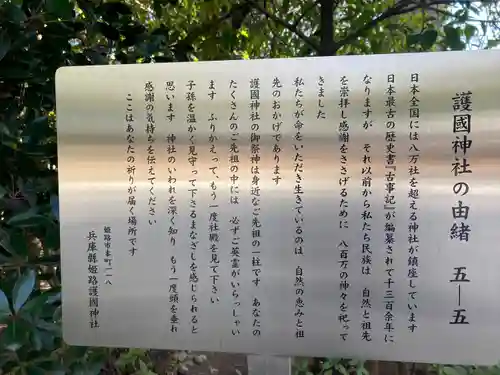 護國神社の由緒　五―五
日本全国には八万社を超える神社が鎮座しています
日本最古の歴史書『古事記』が編纂されて千三百余年に
なりますが　それ以前から私たち民族は　自然と祖先
を崇拝し感謝をささげるために　八百万の神々を祀って
きました
私たちが命をいただき生きているのは　自然の恵みと祖
先のおかげであります
護国神社の御祭神は身近なご先祖の一柱です　あなたの
たくさんのご先祖の中には　必ずご英霊がいらっしゃい
ます　ふりかえって、もう一度社殿を見て下さい
子孫を温かく見守って下さるまなざしを感じられると
思います　神社のいわれを深く知り　もう一度頭を垂れ
感謝の気持ちを伝えてください
ここはあなたの祈りが届く場所です
姫路市本町一一八
兵庫縣姫路護國神社